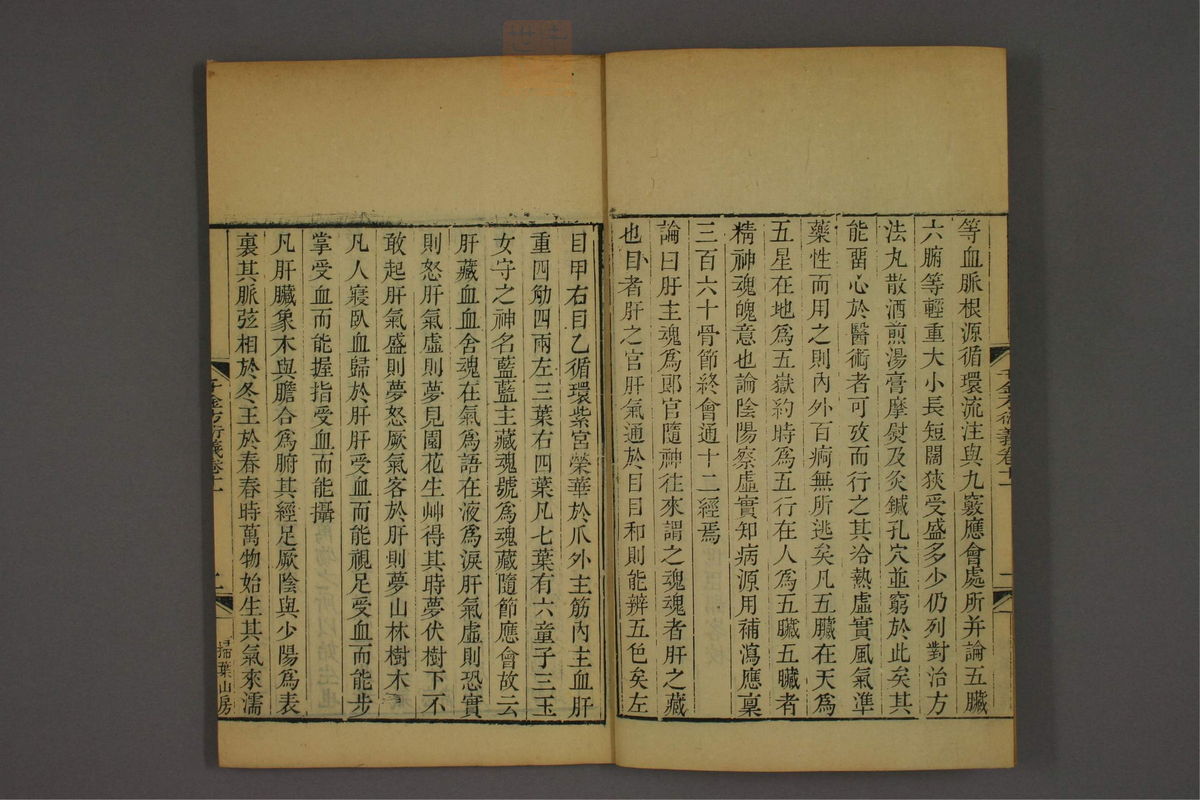 等血脈根源循環流注與九竅應會處所并論五臟
六腑等輕重大小長短闊狹受盛多少仍列對治方
法丸散酒煎湯膏摩熨及灸鍼孔穴並窮於此矣其
能畱心於醫術者可攷而行之其冷熱虛實風氣準
藥性而用之則內外百痾無所逃矣凡五臟在天為
五星在地為五嶽約時為五行在人為五臟五臟者
精神魂魄意也論陰陽察虛實知病源用補瀉應稟
三百六十骨節終會通十二經焉
論曰肝主魂為郎官隨神往來謂之魂魂者肝之藏
也目者肝之官肝氣通於目目和則能辨五色矣左
目甲右目乙循環紫宮榮華於爪外主筋內主血肝
重四觔四兩左三葉右四葉凡七葉有六童子三玉
女守之神名藍藍主藏魂號為魂藏隨節應會故云
肝藏血血舍魂在氣為語在液為淚肝氣虛則恐實
則怒肝氣虛則夢見園花生艸得其時夢伏樹下不
敢起肝氣盛則夢怒厥氣客於肝則夢山林樹木
凡人寢臥血歸於肝肝受血而能視足受血而能步
掌受血而能握指受血而能攝
凡肝臟象木與膽合為腑其經足厥陰與少陽為表
裏其脈弦相於冬王於春春時萬物始生其氣來濡
千金方衍義卷十一
二
掃葉山房